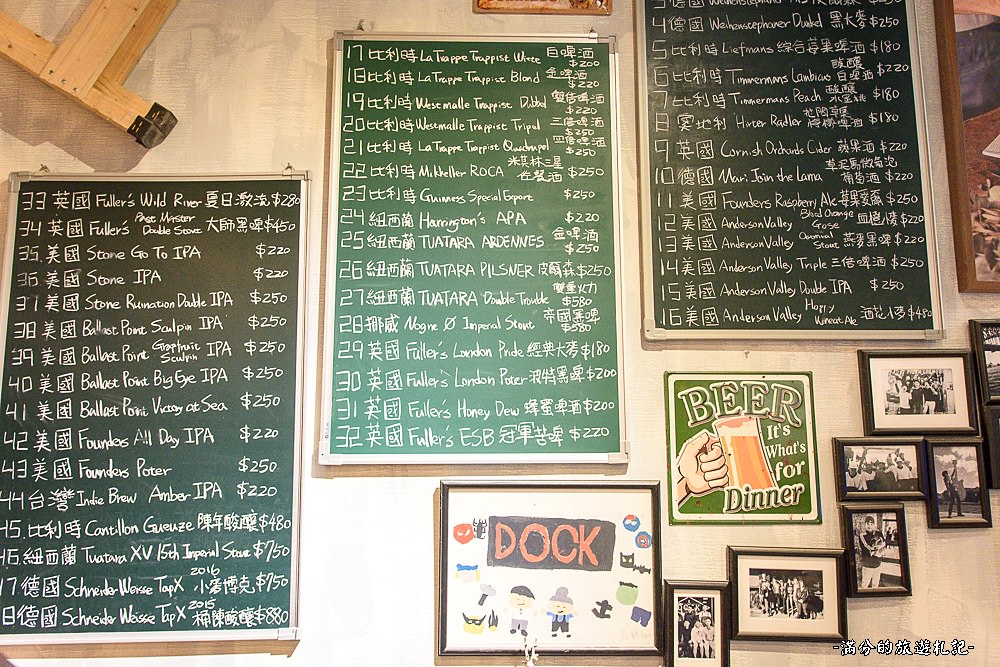 33 英國 Fuller's Wild River 夏日激流 $280
34 英國 Fuller's Past Master Double Stout 大師黑啤 $450
35 美國 Stone Go To IPA $220
36 美國 Stone IPA $220
37 美國 Stone Ruination Double IPA $250
38 美國 Ballast Point Sculpin IPA $250
39 美國 Ballast Point Grapefruit Sculpin IPA $250
40 美國 Ballast Point Big Eye IPA $250
41 美國 Ballast Point Victory at Sea $250
42 美國 Founders All Day IPA $220
43 美國 Founders Poter $250
44 台灣 Indie Brew Amber IPA $220
45 比利時 Cantillon Gueuze 陳年酸釀 $480
46 紐西蘭 Tuatara XV 15th Imperial Stout $750
17 德國 Schneider Weisse TapX 2016 小麥博克 $750
8 德國 Schneider Weisse TapX 2015 桶陳酸釀 $880
17 比利時 La Trappe Trappist White 白啤酒 $200
18 比利時 La Trappe Trappist Blond 金啤酒 $220
19 比利時 Westmalle Trappist Dubbel 雙倍啤酒 $220
20 比利時 Westmalle Trappist Tripel 三倍啤酒 $250
21 比利時 La Trappe Trappist Quadrupel 四倍啤酒 $250
22 比利時 Mikkeller ROCA 米其林三星 佐餐酒 $250
23 比利時 Guinness Special Export $250
24 紐西蘭 Harrington's APA $220
25 紐西蘭 TUATARA ARDENNES 金啤酒 $250
26 紐西蘭 TUATARA PILSNER 皮爾森 $250
27 紐西蘭 TUATARA Double Trouble 雙重火力 $580
28 挪威 Nogne Ø Imperial Stout 帝國黑啤 $580
29 英國 Fuller's London Pride 經典大麥 $180
30 英國 Fuller's London Poter 波特黑啤 $200
31 英國 Fuller's Honey Dew 蜂蜜啤酒 $200
32 英國 Fuller's ESB 冠軍苦啤 $220
3 德國 Weihenstephaner $250
4 德國 Weihenstephaner Dunkel 黑大麥 $250
5 比利時 Liefmans 綜合莓果啤酒 $180
6 比利時 Timmermans Lambicus 酸釀白啤酒 $220
7 比利時 Timmermans Peach 酸釀水蜜桃 $180
8 奧地利 Hirter Radler 檸檬啤酒 $180
9 英國 Cornish Orchards Cider 蘋果酒 $220
10 德國 Mari Join the Lama 草泥馬微氣泡葡萄酒 $220
11 美國 Founders Raspberry Ale 莓果愛爾 $250
12 美國 Anderson Valley Blood Orange Gose 血橙小麥 $220
13 美國 Anderson Valley Oatmeal Stout 燕麥黑啤 $220
14 美國 Anderson Valley Triple 三倍啤酒 $250
15 美國 Anderson Valley Double IPA $250
16 美國 Anderson Valley Hoppy Wheat Ale 酒花小麥 $480
BEER
It's
What's
for
Dinner
DOCK
-滿分的旅遊札記-